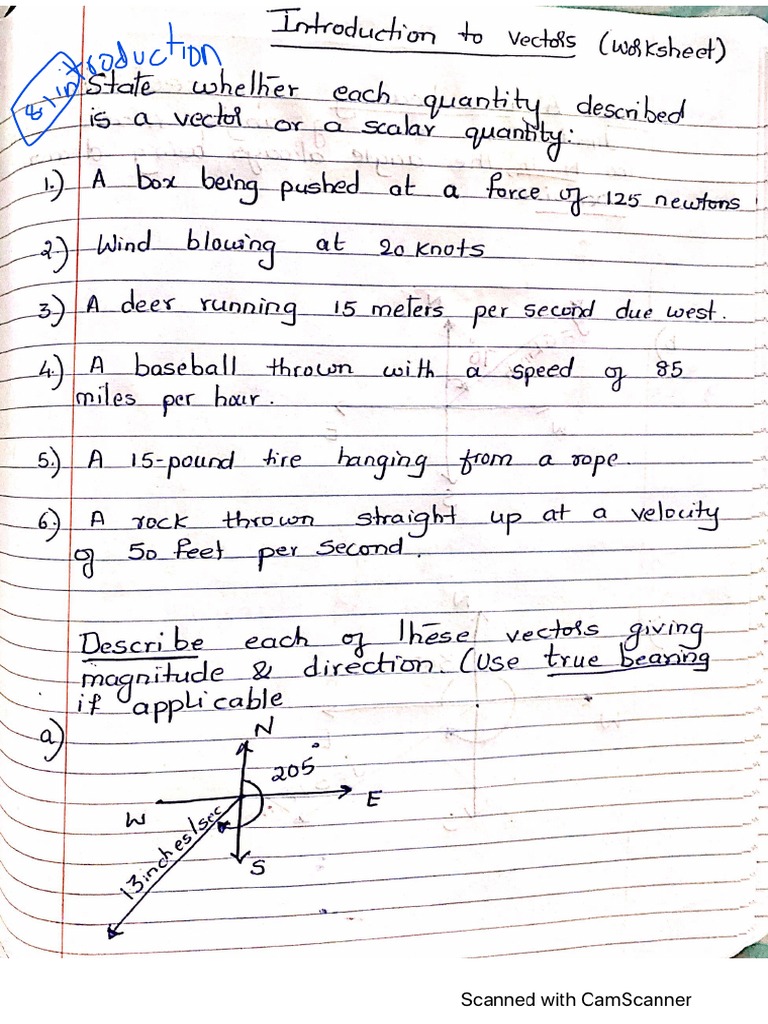 Introduction to vectors (worksheet)
8.1 introduction
State whether each quantity described
is a vector or a scalar quantity:
1.) A box being pushed at a force of 125 newtons
2.) Wind blowing at 20 knots
3.) A deer running 15 meters per second due west.
4.) A baseball thrown with a speed of 85
miles per hour.
5.) A 15-pound tire hanging from a rope.
6.) A rock thrown straight up at a velocity
of 50 feet per second.
Describe each of these vectors giving
magnitude & direction. (Use true bearing
if applicable
a)
N
205°
W
E
13 inches/sec
S
Scanned with CamScanner